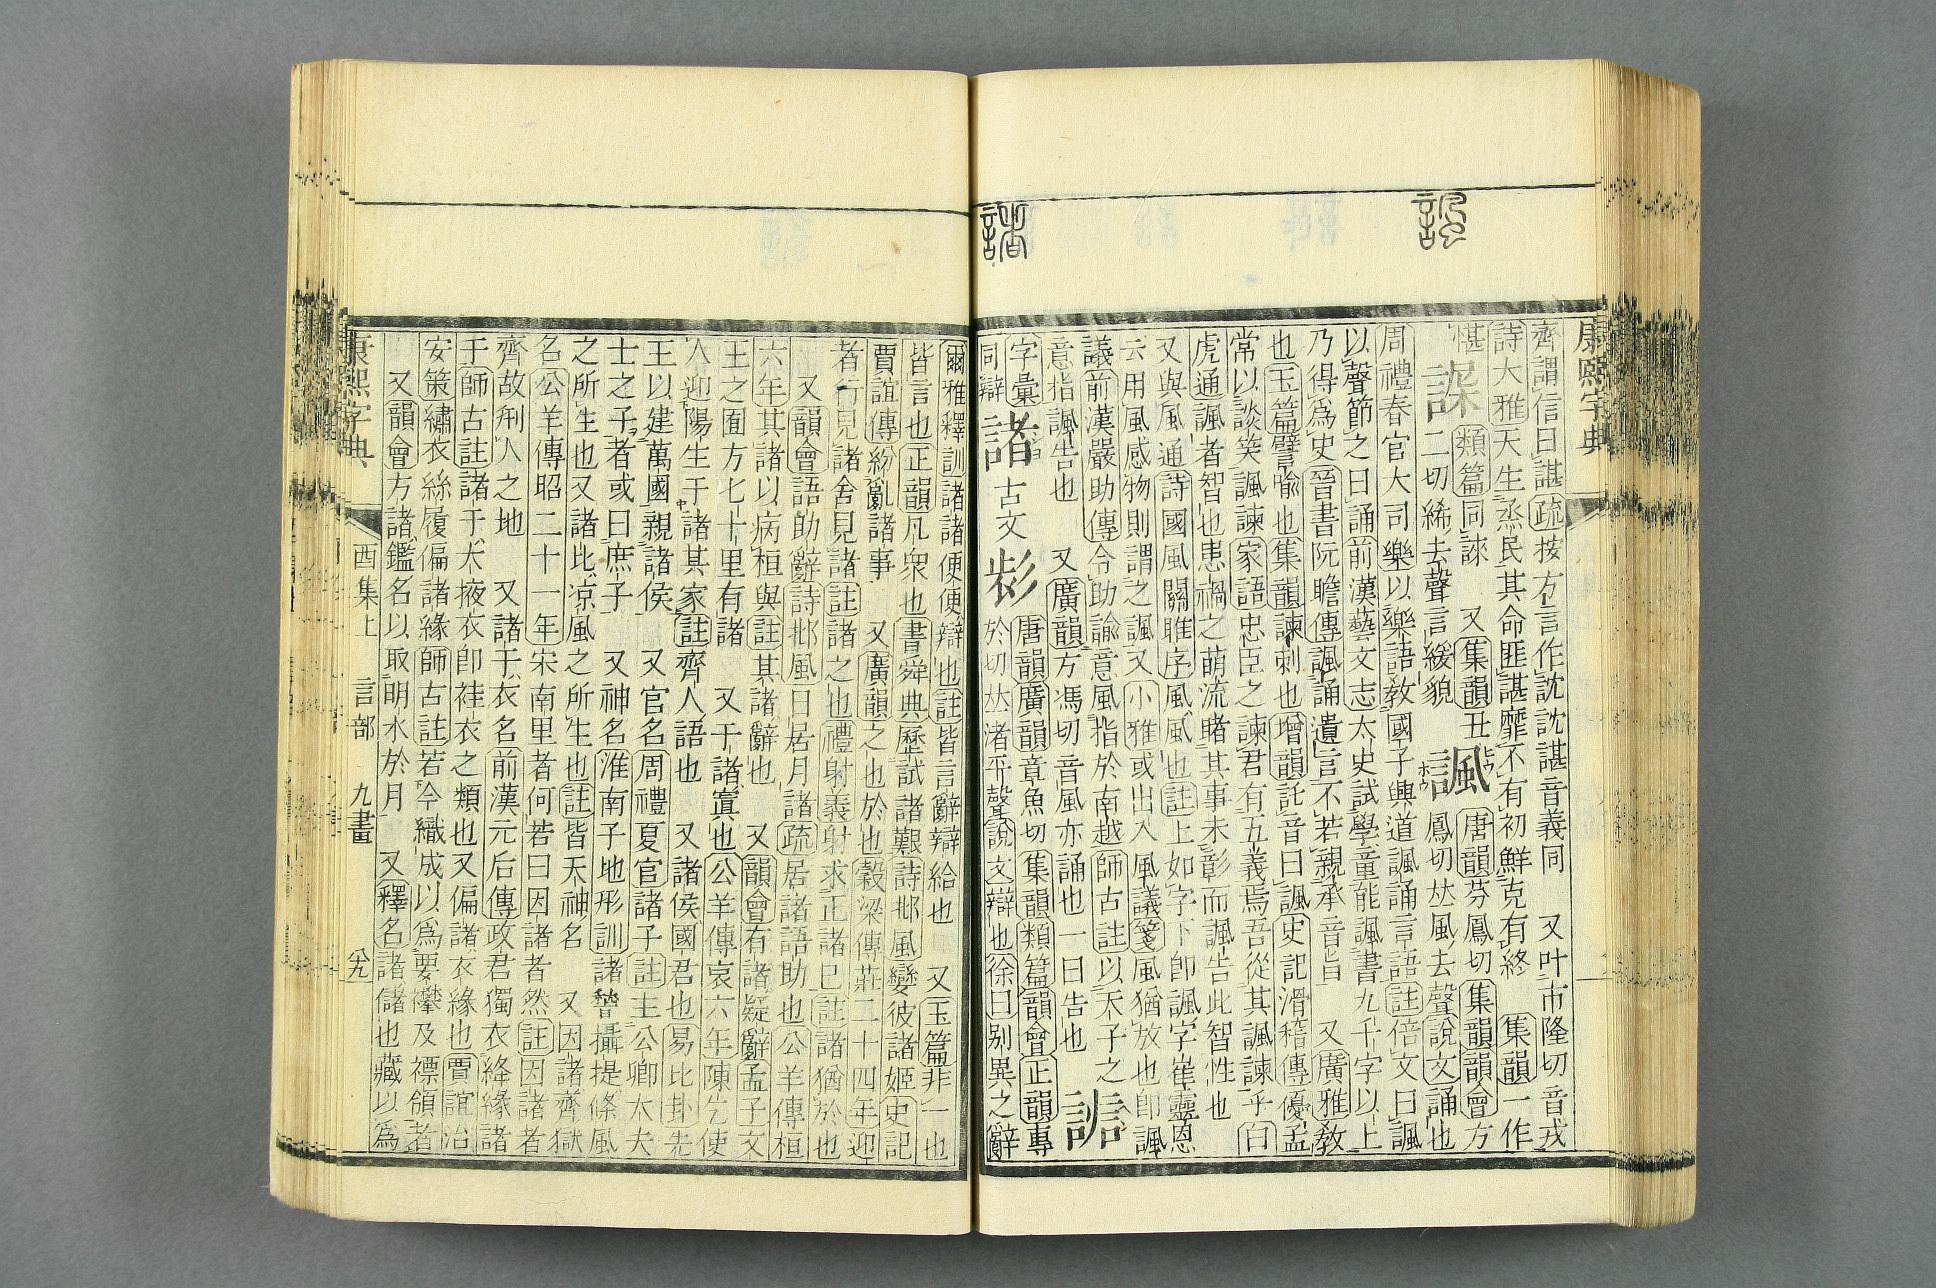 康熙字典
齊謂信曰諶疏按方言作訦訦諶音義同 又叶市隆切音戎
詩大雅天生烝民其命匪諶靡不有初鮮克有終 集韻一作
愖
類篇同誺 又集韻丑
二切絺去聲言緩貌
諷
唐韻芬鳳切集韻韻會方
鳳切𠀤風去聲說文誦也
周禮春官大司樂以樂語敎國子興道諷誦言語註倍文曰諷
以聲節之曰誦前漢藝文志太史試學童能諷書九千字以上
乃得爲史晉書阮瞻傳諷誦遺言不若親承音旨 又廣雅敎
也玉篇譬喻也集韻諫刺也增韻託音曰諷史記滑稽傳優孟
常以談笑諷諫家語忠臣之諫君有五義焉吾從其諷諫乎白
虎通諷者智也患禍之萌流睹其事未彰而諷告此智性也
又與風通詩國風關雎序風風也註上如字下卽諷字崔靈恩
云用風感物則謂之諷又小雅或出入風議箋風猶放也卽諷
議前漢嚴助傳令助諭意風指於南越師古註以天子之
意指諷告也 又廣韻方馮切音風亦誦也一曰告也
字彙
同辯
諸 古文 𢒉
唐韻廣韻章魚切集韻類篇韻會正韻專
於切𠀤渚平聲說文辯也徐曰別異之辭
爾雅釋訓諸諸便便辯也註皆言辭辯給也 又玉篇非一也
皆言也正韻凡衆也書舜典歷試諸艱詩邶風孌彼諸姬史記
賈誼傳紛亂諸事 又廣韻之也於也穀梁傳莊二十四年迎
者行見諸舍見諸註諸之也禮射義射求正諸已註諸猶於也
又韻會語助辭詩邶風日居月諸疏居諸語助也公羊傳桓
六年其諸以病桓與註其諸辭也 又韻會有諸疑辭孟子文
王之囿方七十里有諸 又于諸寘也公羊傳哀六年陳乞使
人迎陽生于諸其家註齊人語也 又諸侯國君也易比卦先
王以建萬國親諸侯 又官名周禮夏官諸子註主公卿大夫
士之子者或曰庶子 又神名淮南子地形訓諸稽攝提條風
之所生也又諸比凉風之所生也註皆天神名 又因諸齊獄
名公羊傳昭二十一年宋南里者何若曰因諸者然註因諸者
齊故刑人之地 又諸于衣名前漢元后傳政君獨衣絳緣諸
于師古註諸于大掖衣卽袿衣之類也又偏諸衣緣也賈誼治
安策繡衣絲履偏諸緣師古註若今織成以爲要襻及褾領者
又韻會方諸鑑名以取明水於月 又釋名諸儲也藏以爲
康熙字典 酉集上 言部 九畫 八九